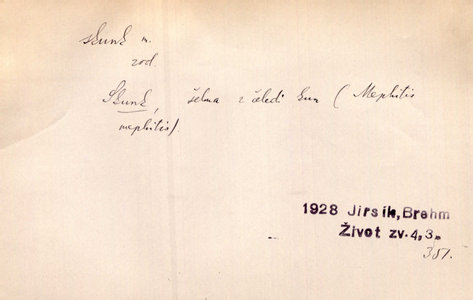 skunk m.
zool.
Skunk, šelma z čeledi kun (Mephitis
mephitis).
1928 Jirsík, Brehm
Život zv. 4, 3.
351.